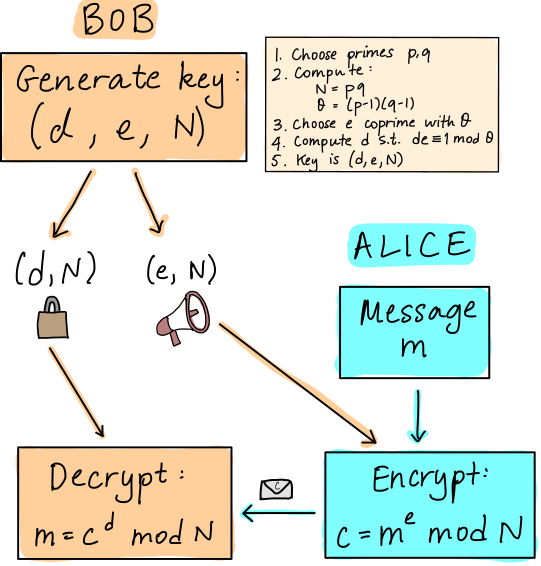 BOB
Generate key:
(d, e, N)
1. Choose primes p,q
2. Compute:
N = pq
θ = (p-1)(q-1)
3. Choose e coprime with θ
4. Compute d s.t. de≡1 mod θ
5. Key is (d,e,N)
(d,N)
(e, N)
ALICE
Message
m
Decrypt:
m = c^d mod N
c
Encrypt:
c = m^e mod N